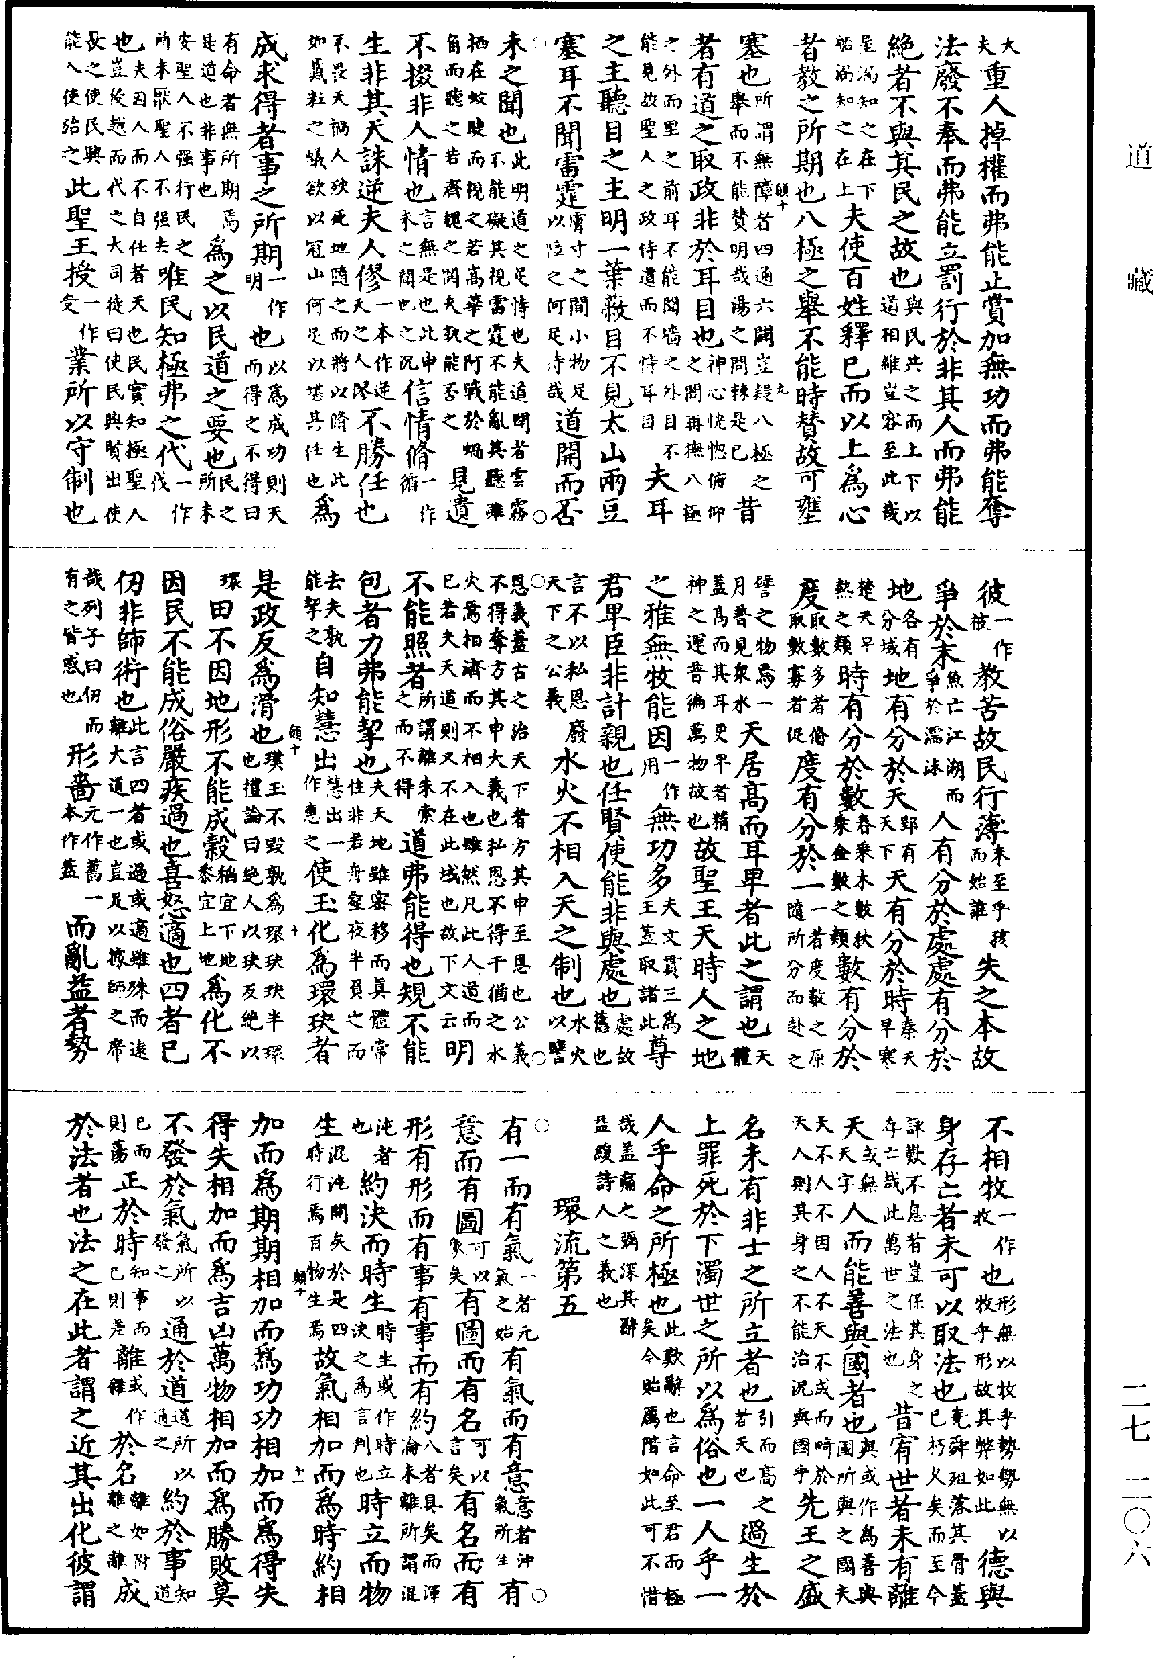 大夫重人掉權而弗能止賞加無功而弗能奪
法廢不奉而弗能立罰行於非其人而弗能
絕者不與其民之故也與民共之而上下以道相維豈容至此哉
星溺知之在下船溺知之在上夫使百姓釋己而以上為心
者教之所期也八極之舉不能時贊故可壅
塞也所謂無障者四通六闢豈疑八極之舉而不能贊明哉湯之問棘是已昔
者有道之取政非於耳目也神心恍惚俯仰之間再撫八極
之外而里之前耳不能聞牆之外目不能見故聖人之政恃遺而不恃耳目夫耳
之主聽目之主明一葉蔽目不見太山兩豆
塞耳不聞雷霆膚寸之間小物足以障之何足恃哉道開而否
未之聞也此明道之足恃也夫道明者雲霧不能礙其視雷霆不能亂其聽雖
栖在蚊睫而視之若高華之阿戰於蝸角而聽之若齊魏之閧夫孰能否之見遺
不掇非人情也言無是也此申未之聞也之沉信情脩一作循
生非其天誅逆夫人僇一本作逆天之人僇不勝任也
不畏天禍人殃死地隨之而將以脩生此如戴粒之蟻欲以冠山何足以堪其任也為
成求得者事之所期一作明也以為成功則天而得之不得曰
有命者無所期焉是道也非事也為之以民道之要也民之所未
安聖人不强行民之所未厭聖人不强去唯民知極弗之代一作伐
也夫因人而不自任者天也民實知極聖人豈後越而代之大司徒曰使民興賢出使
長之使民興能入使治之此聖王授一作受業所以守制也
彼一作彼教苦故民行薄未至乎孩而始誰失之本故
爭於末魚亡江湖而爭於濡沫人有分於處處有分於
地各有分域地有分於天郢有天下天有分於時秦天早寒
楚天早熱之類時有分於數春乘木數秋乘金數之類數有分於
度取數多者脩取數寡者促度有分於一一者度數之原隨所分而赴之
譬之物焉一月普見衆水天居高而耳卑者此之謂也天體
蓋高而其耳更卑者精神之運吾徧萬物故也故聖王天時人之地
之雅無牧能因一作用無功多夫文貫三為王蓋取諸此尊
君卑臣非計親也任賢使能非與處也處故舊也
言不以私恩廢天下之公義水火不相入天之制也以水火譬
恩義蓋古之治天下者方其申至恩也公義不得奪方其申大義也私恩不得干猶之水
火焉相濟而不相入也雖然凡此人道而已若夫天道則又不在此域也故下文云明
不能照者所謂離朱索之而不得道弗能得也規不能
包者力弗能挈也夫天地雖密移而真體常住非若舟壑夜半負之而
去夫孰能挈之自知慧出慧出一作惠之使玉化為環玦者
是政反為滑也璞玉不毀孰為環玦玦半環也禮論曰絕人以玦反絕以
環田不因地形不能成穀稻宜下地黍宜上地為化不
因民不能成俗嚴疾過也喜怒適也四者已
仞非師術也此言四者或過或適雖殊而遠離大道一也豈足以據師之席
哉列子曰仞而有之皆惑也形嗇元作舊一本作蓋而亂益者勢
不相牧一作牧也形無以牧乎勢勢無以牧乎形故其弊如此德與
身存亡者未可以取法也堯舜殂落其骨蓋已朽久矣而至今
詠歎不息者豈保其身之存亡哉此萬世之法也昔宥世者未有離
天或無天字人而能善與國者也與或作為善與國所與之國夫
天不人不因人不天不或而畸於天人則其身之不能治況與國乎先王之盛
名未有非士之所立者也引而高之若天也過生於
上罪死於下濁世之所以為俗也一人乎一
人乎命之所極也此歎辭也言命至君而極矣今貽厲階如此可不惜
哉蓋痛之彌深其辭益緩詩人之義也
環流第五
有一而有氣一者元氣之始有氣而有意意者沖氣所生有
意而有圖可以象矣有圖而有名可以言矣有名而有
形有形而有事有事而有約八者具矣而渾淪未離所謂混
沌者也約決而時生時生或作時立決之為言判也時立而物
生混沌開矣於是四時行焉百物生焉故氣相加而為時約相
加而為期期相加而為功功相加而為得失
得失相加而為吉凶萬物相加而為勝敗莫
不發於氣氣所以發之通於道道所以通之約於事知道
已而則蕩正於時知事而已則差離或作雜於名離如附離之離成
於法者也法之在此者謂之近其出化彼謂
道藏
二七 二〇六